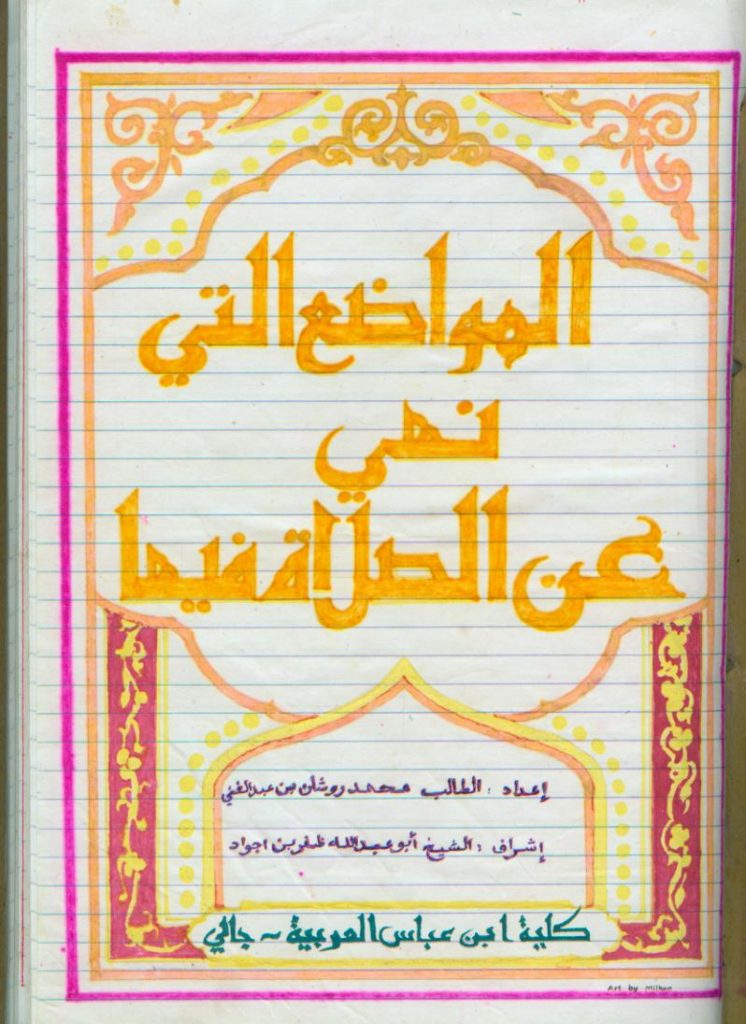 المواضع التي
نهي
عن الصلاة فيها
إعداد : الطالب محمد روشان بن عبد الغني
إشراف : الشيخ أبو عبد الله ظفر بن اجواد
كلية ابن عباس العربية ~ جالي
Art by Milhan